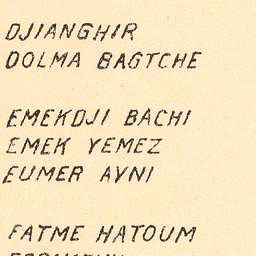 DJIANGHIR
DOLMA BAGTCHE
EMEKDJI BACHI
EMEK YEMEZ
EUMER AVNI
FATME HATOUM